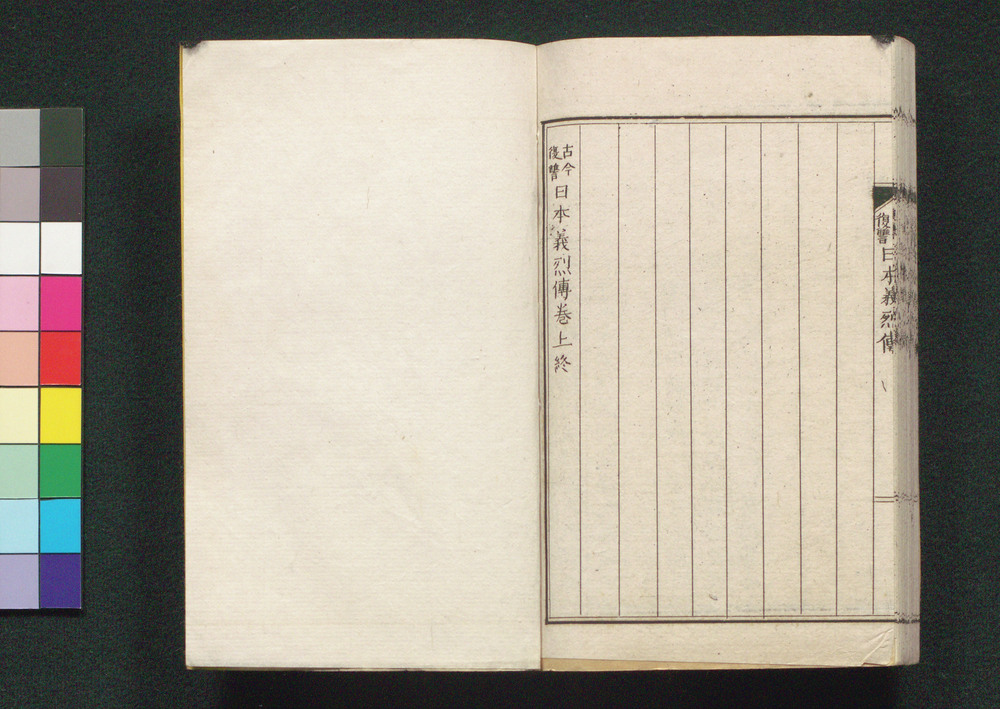 復讐日本義烈傳
古今復讐日本義烈傳卷上終